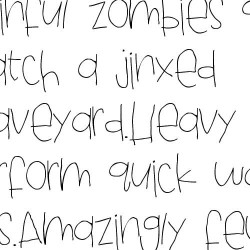 inful zombies
atch a jinxed
aveyard.Heavy
rform quick wo
s.Amazingly fe